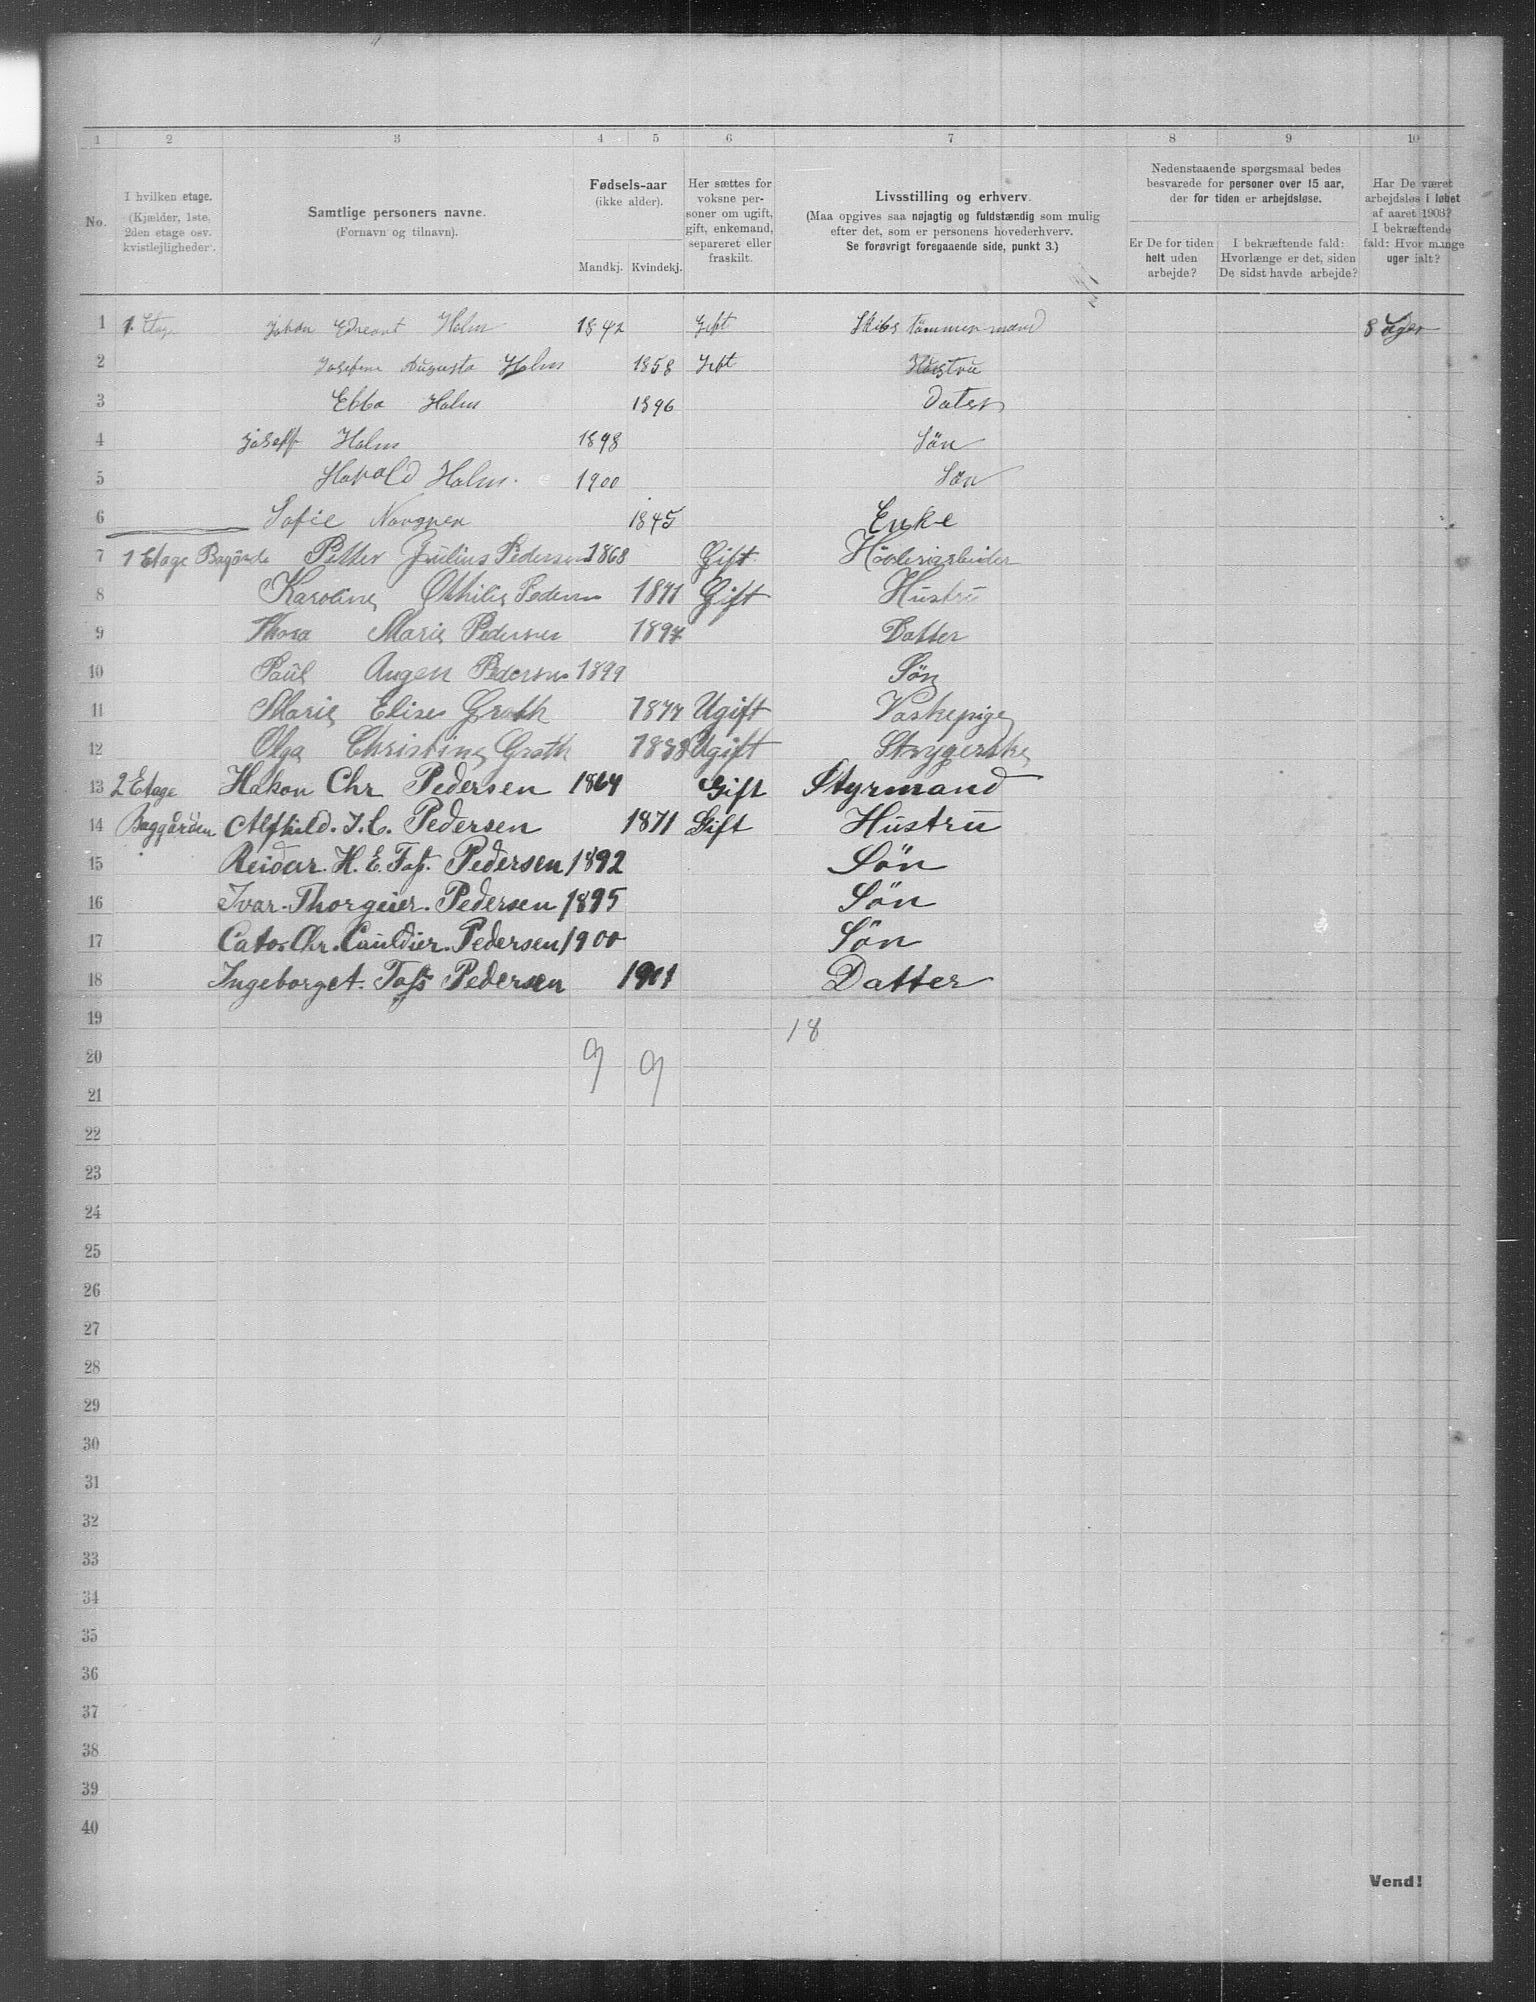 1 2 3 4 5 6 7 8 9 10
No.
I hvilken etage.
(Kjælder, 1ste,
2den etage osv.
kvistlejligheder.
Samtlige personers navne.
(Fornavn og tilnavn).
Fødsels-aar
(ikke alder).
Mandkj. Kvindekj.
Her sættes for
voksne per-
soner om ugift,
gift, enkemand,
separeret eller
fraskilt.
Livsstilling og erhverv.
(Maa opgives saa nøjagtig og fuldstændig som mulig
efter det, som er personens hovederhverv.
Se forøvrigt foregaaende side, punkt 3.)
Nedenstaaende spørgsmaal bedes
besvarede for personer over 15 aar,
der for tiden er arbejdsløse.
Er De for tiden
helt uden
arbejde?
I bekræftende fald:
Hvorlænge er det, siden
De sidst havde arbejde?
Har De været
arbejdsløs i løbet
af aaret 1903?
I bekræftende
fald: Hvor mange
uger ialt?
1 1. Etage Johan Holm 1842 Gift Skibs tømmermand 8 Uger
2 Augusta Holm 1858 Gift Hustru
3 Ebba Holm 1896 Dater
4 Josef Holm 1898 Søn
5 Harald Holm. 1900 Søn
6 Sofie 1845 Enke
7 1 Etage Petter Julius Pedersen 1868 Gift Høvleriarbeider
8 Karoline Othilie Pedersen 1871 Gift Hustru
9 Thora Marie Pedersen 1897 Datter
10 Paul Augen Pedersen 1899 Søn
11 Marie Elise Groth 1877 Ugift Vaskepige
12 Olga Christine Groth 1888 Ugift Strygerske
13 2 Etage Hakon Chr Pedersen 1864 Gift Styrmand
14 Baggården Alfhild. J. C. Pedersen 1871 Gift Hustru
15 Reidar. H. E. Pedersen 1892 Søn
16 Ivar. Thorgeier. Pedersen 1895 Søn
17 Cato. Chr. Pedersen 1900 Søn
18 Ingeborget. Pedersen 1901 Datter
19 18
20 9 9
21
22
23
24
25
26
27
28
29
30
31
32
33
34
35
36
37
38
39
40
Vend!